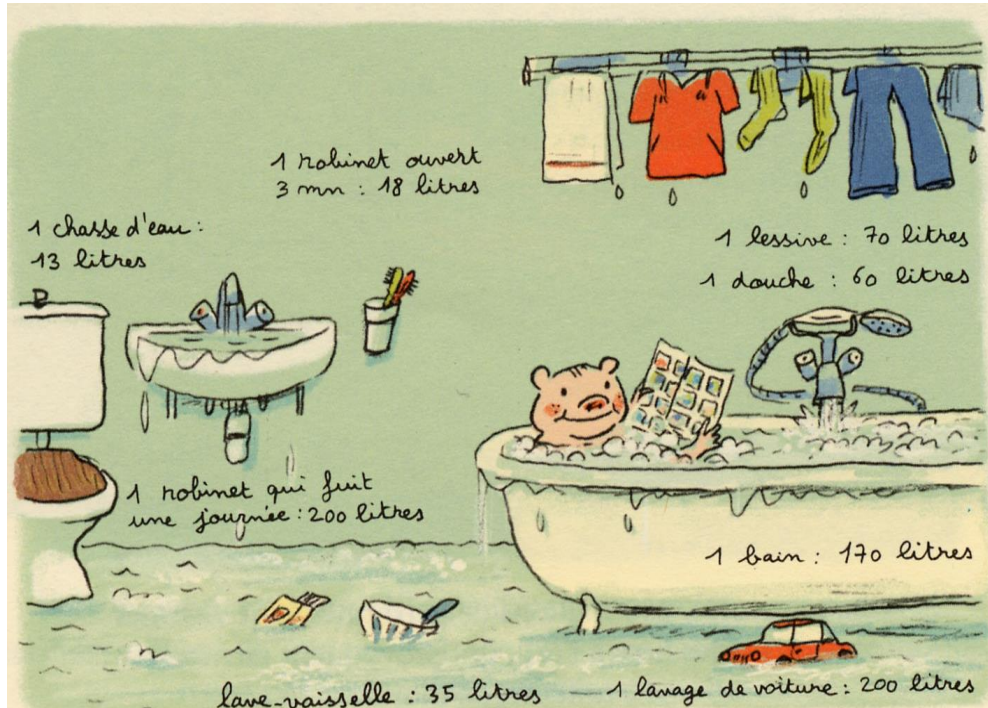 1 robinet ouvert
3 mn : 18 litres
1 chasse d'eau :
13 litres
1 lessive : 70 litres
1 douche : 60 litres
1 robinet qui fuit
une journée : 200 litres
1 bain : 170 litres
lave-vaisselle : 35 litres
1 lavage de voiture : 200 litres